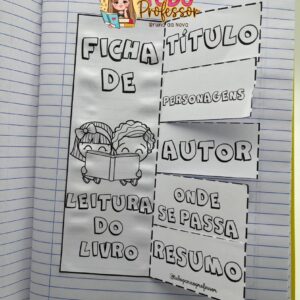 Professor
Bruna da Nova
FICHA
DE
LEITURA
DO
LIVRO
TÍTULO
PERSONAGENS
AUTOR
ONDE
SE PASSA
RESUMO